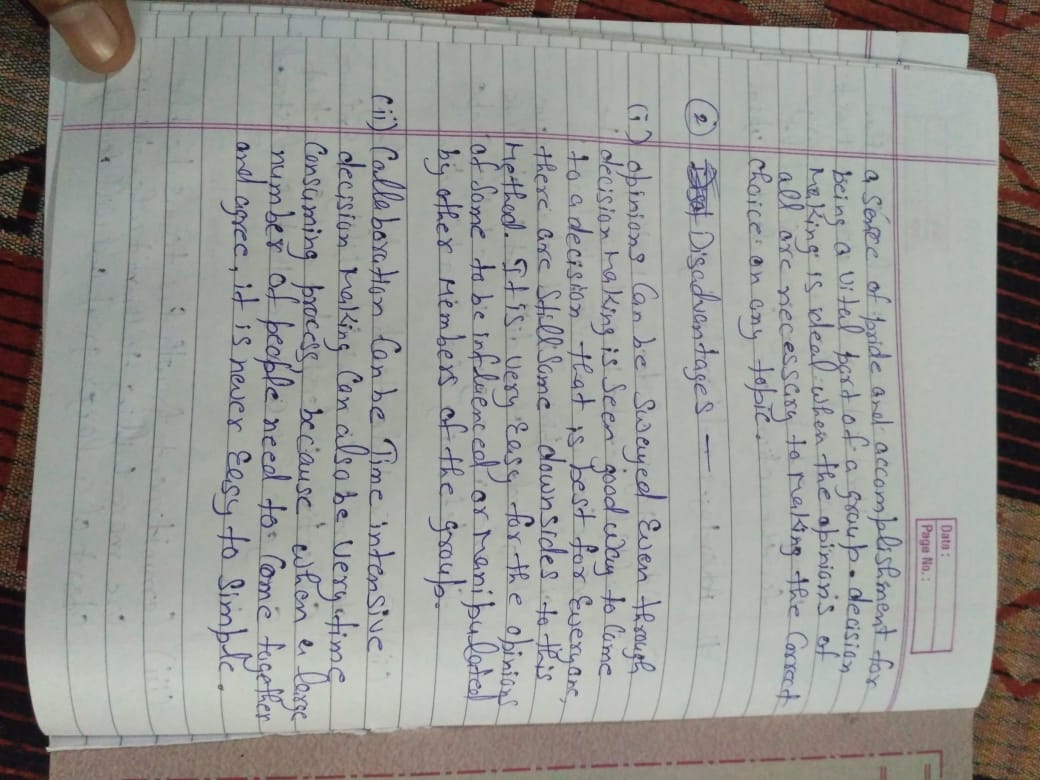 Date :
Page No. :
a sense of pride and accomplishment for
being a vital part of a group. decision
Making is ideal when the opinions of
all are necessary to Making the Correct
choice on any topic.
(2) Disadvantages —
(i) opinions Can be Swayed Even through
decision Making is Seen good way to Come
to a decision that is best for Everyone,
there are Still Some downsides to this
Method. It is very Easy for the opinions
of Some to be influenced or Manipulated
by other Members of the group.
(ii) Collaboration Can be Time intensive
decision Making Can also be very time
Consuming process, because when a large
number of people need to Come together
and agree, it is never Easy to Simple.